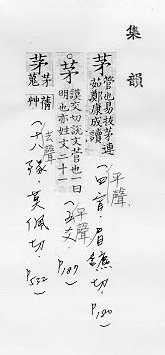 集韻
茅 菅也易拔茅連
茹鄭康成讀
平聲
(四宵.眉鑣切.
P180)
茅
謨交切說文菅也一曰
明也亦姓文二十一
平聲
(五爻.
P187)
茅 茅蒐艸
去聲
(十八隊.莫佩切.
P532)